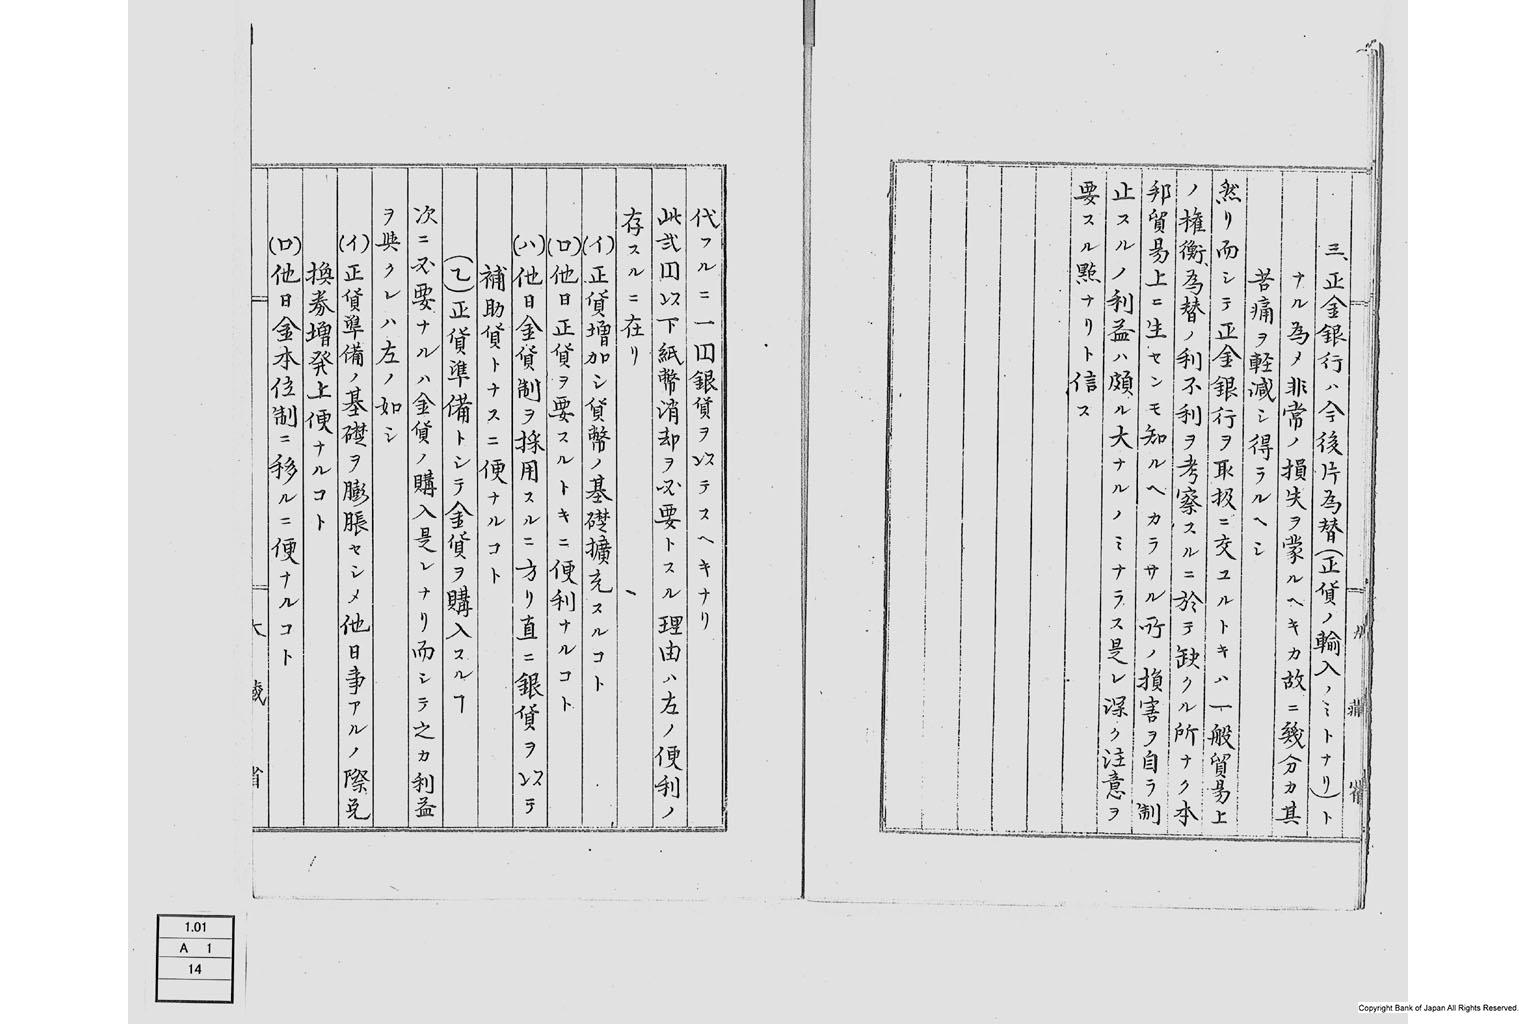 三、正金銀行ハ今後片為替(正貨ノ輸入ノミトナリ)ト
ナル為メ非常ノ損失ヲ蒙ルヘキカ故ニ幾分カ其
苦痛ヲ軽減シ得ラルヘシ
然リ而シテ正金銀行ヲ取扱ニ交ユルトキハ一般貿易上
ノ権衡、為替ノ利不利ヲ考察スルニ於テ缺クル所ナク本
邦貿易上ニ生センモ知ルヘカラサル所ノ損害ヲ自ラ制
止スルノ利益ハ頗ル大ナルノミナラス是レ深ク注意ヲ
要スル點ナリト信ス
代フルニ一円銀貨ヲ以テスヘキナリ
此弐円以下紙幣消却ヲ必要トスル理由ハ左ノ便利ノ
存スルニ在リ
(イ)正貨増加シ貨幣ノ基礎擴充スルコト
(ロ)他日正貨ヲ要スルトキニ便利ナルコト
(ハ)他日金貨制ヲ採用スルニ方リ直ニ銀貨ヲ以テ
補助貨トナスニ便ナルコト
(乙)正貨準備トシテ金貨ヲ購入スルヿ
次ニ必要ナルハ金貨ノ購入是レナリ而シテ之カ利益
ヲ挙クレハ左ノ如シ
(イ)正貨準備ノ基礎ヲ膨脹セシメ他日事アルノ際兌
換券増発上便ナルコト
(ロ)他日金本位制ニ移ルニ便ナルコト
大蔵省
1.01
A 1
14
Copyright Bank of Japan All Rights Reserved.